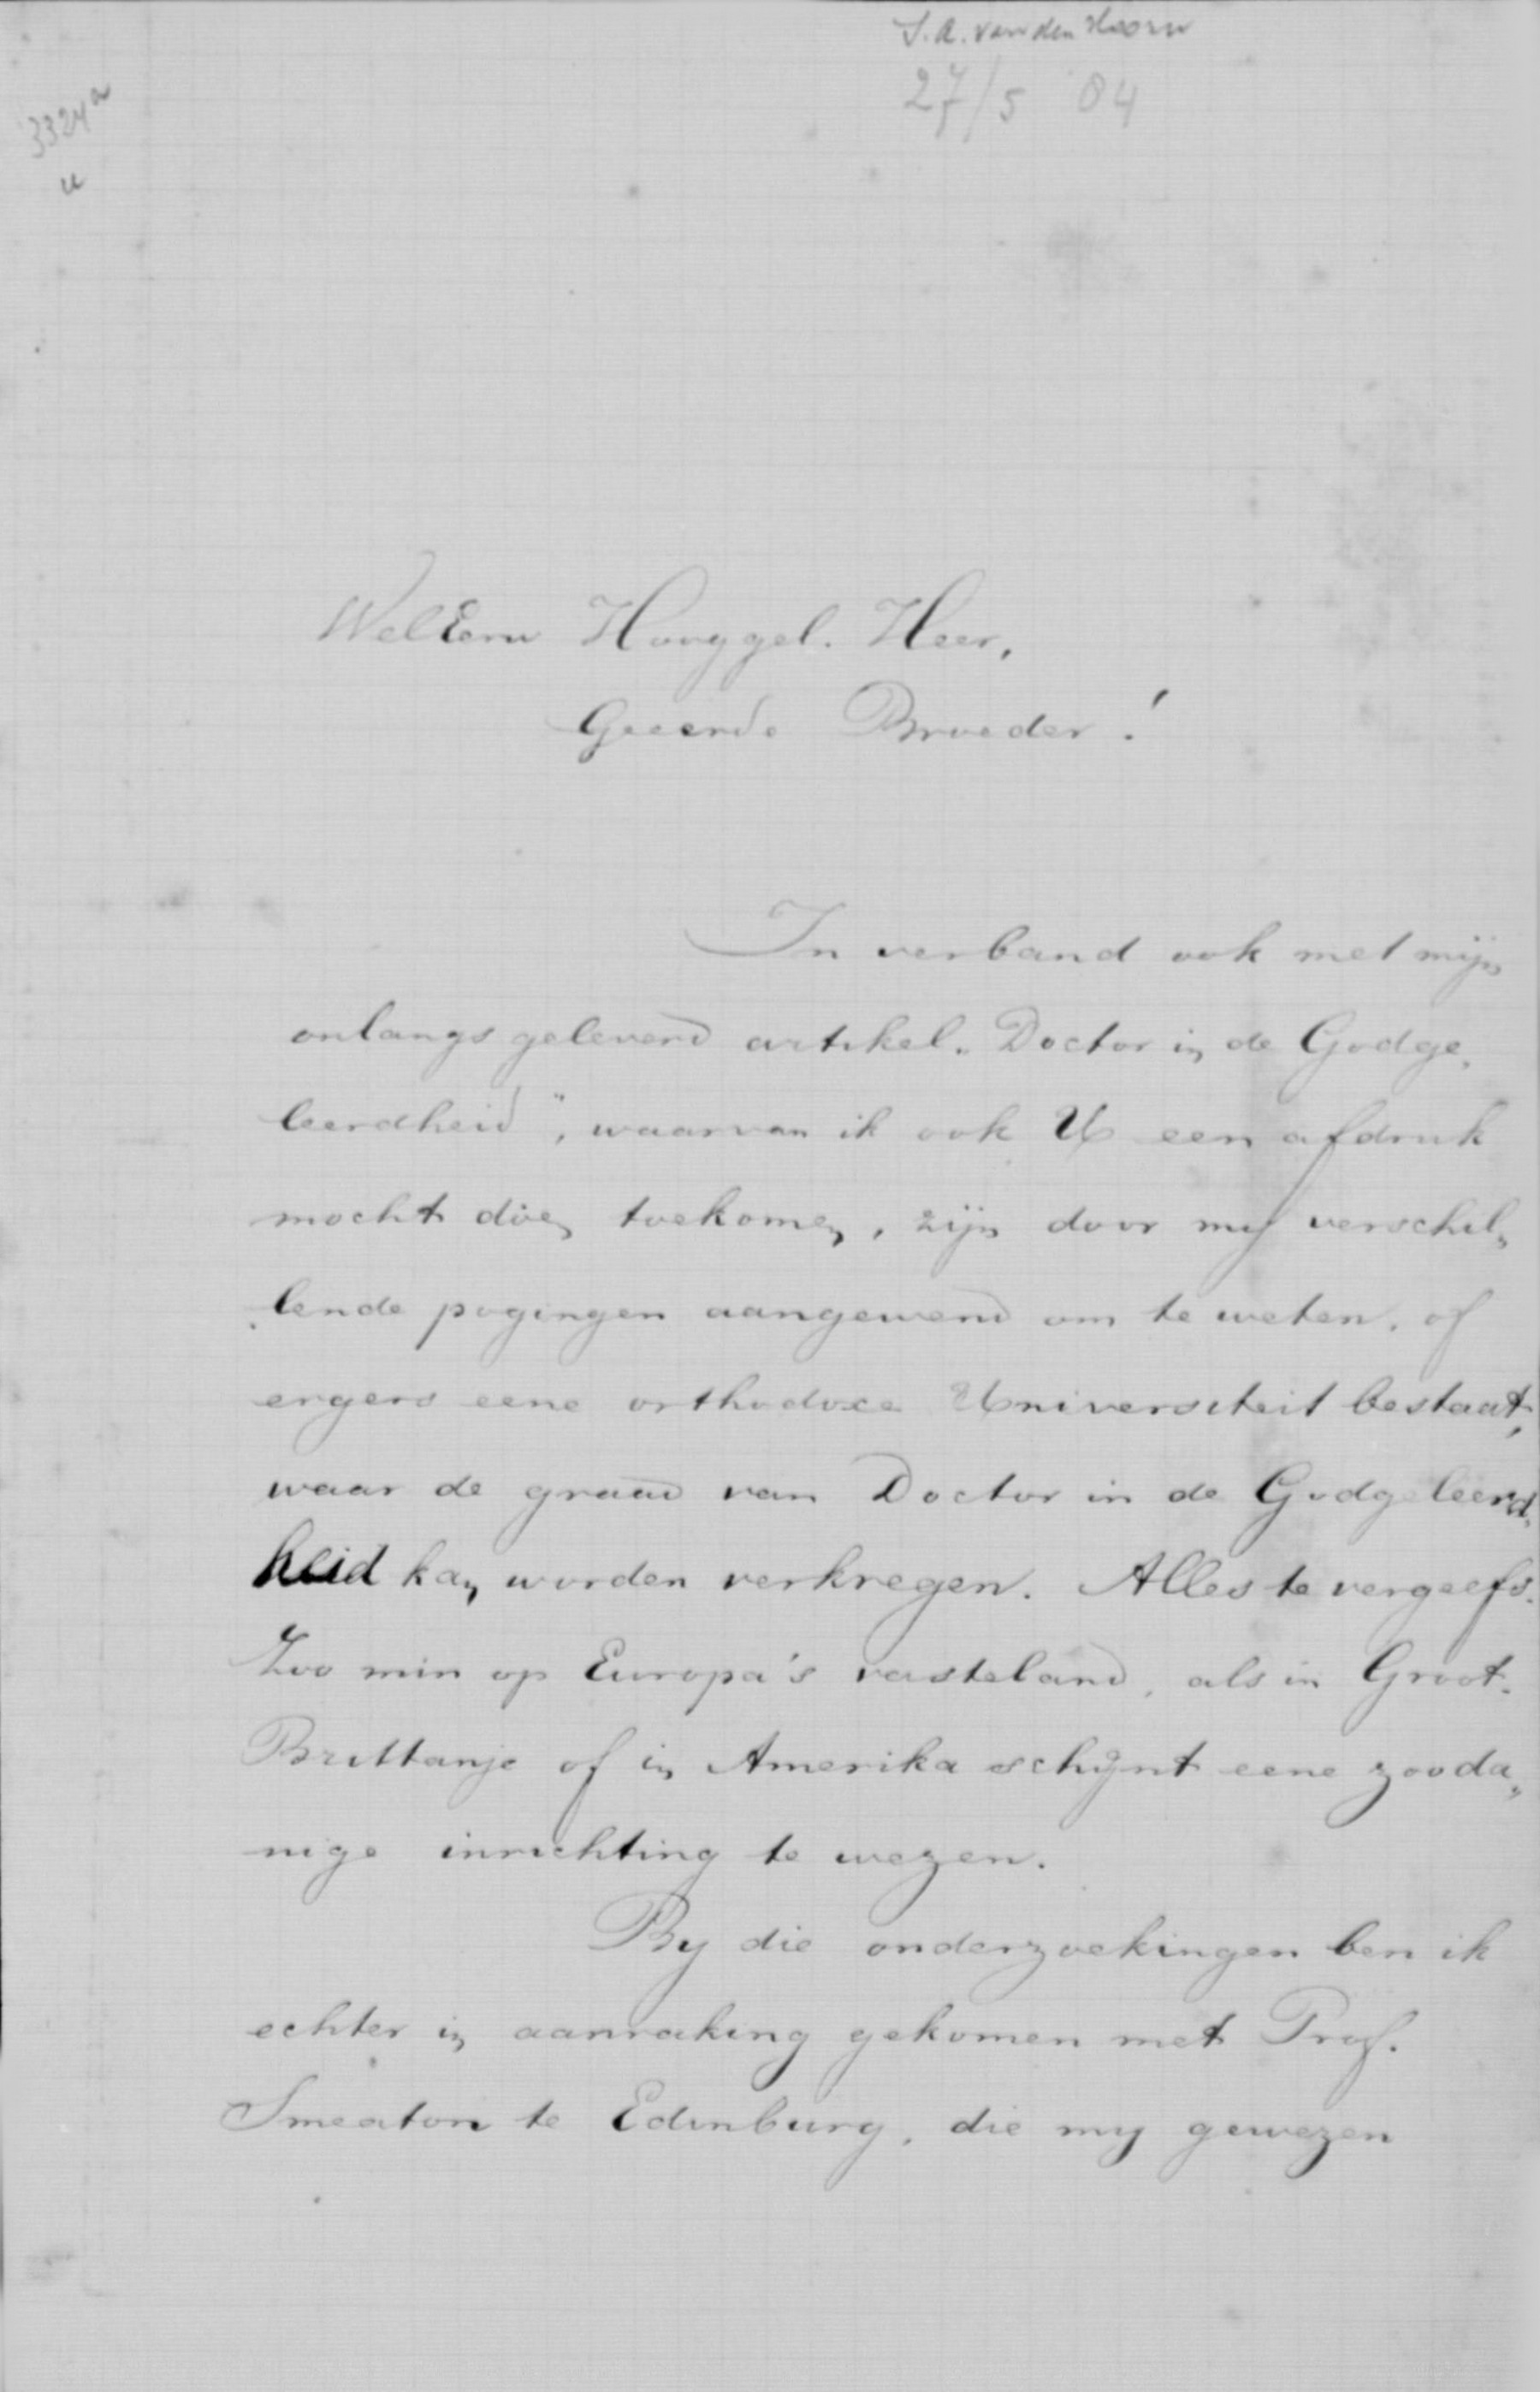 S. A. van den Hoorn
27/5 84
3324a
u
WelEerw Hooggel. Heer,
Geeerde Broeder!
In verband ook met mijn
onlangs geleverd artikel „Doctor in de Godge„
leerdheid", waarvan ik ook U een afdruk
mocht doen toekomen, zijn door my verschil„
„lende pogingen aangewend om te weten, of
ergers eene orthodoxe Universiteit bestaat,
waar de graad van Doctor in de Godgeleerd„
heid kan worden verkregen. Alles te vergeefs.
Zoo min op Europa's vasteland, als in Groot-
Brittanje of in Amerika schijnt eene zooda„
nige inrichting te wezen.
By die onderzoekingen ben ik
echter in aanraking gekomen met Prof.
Smeaton te Edinburg, die my gewezen